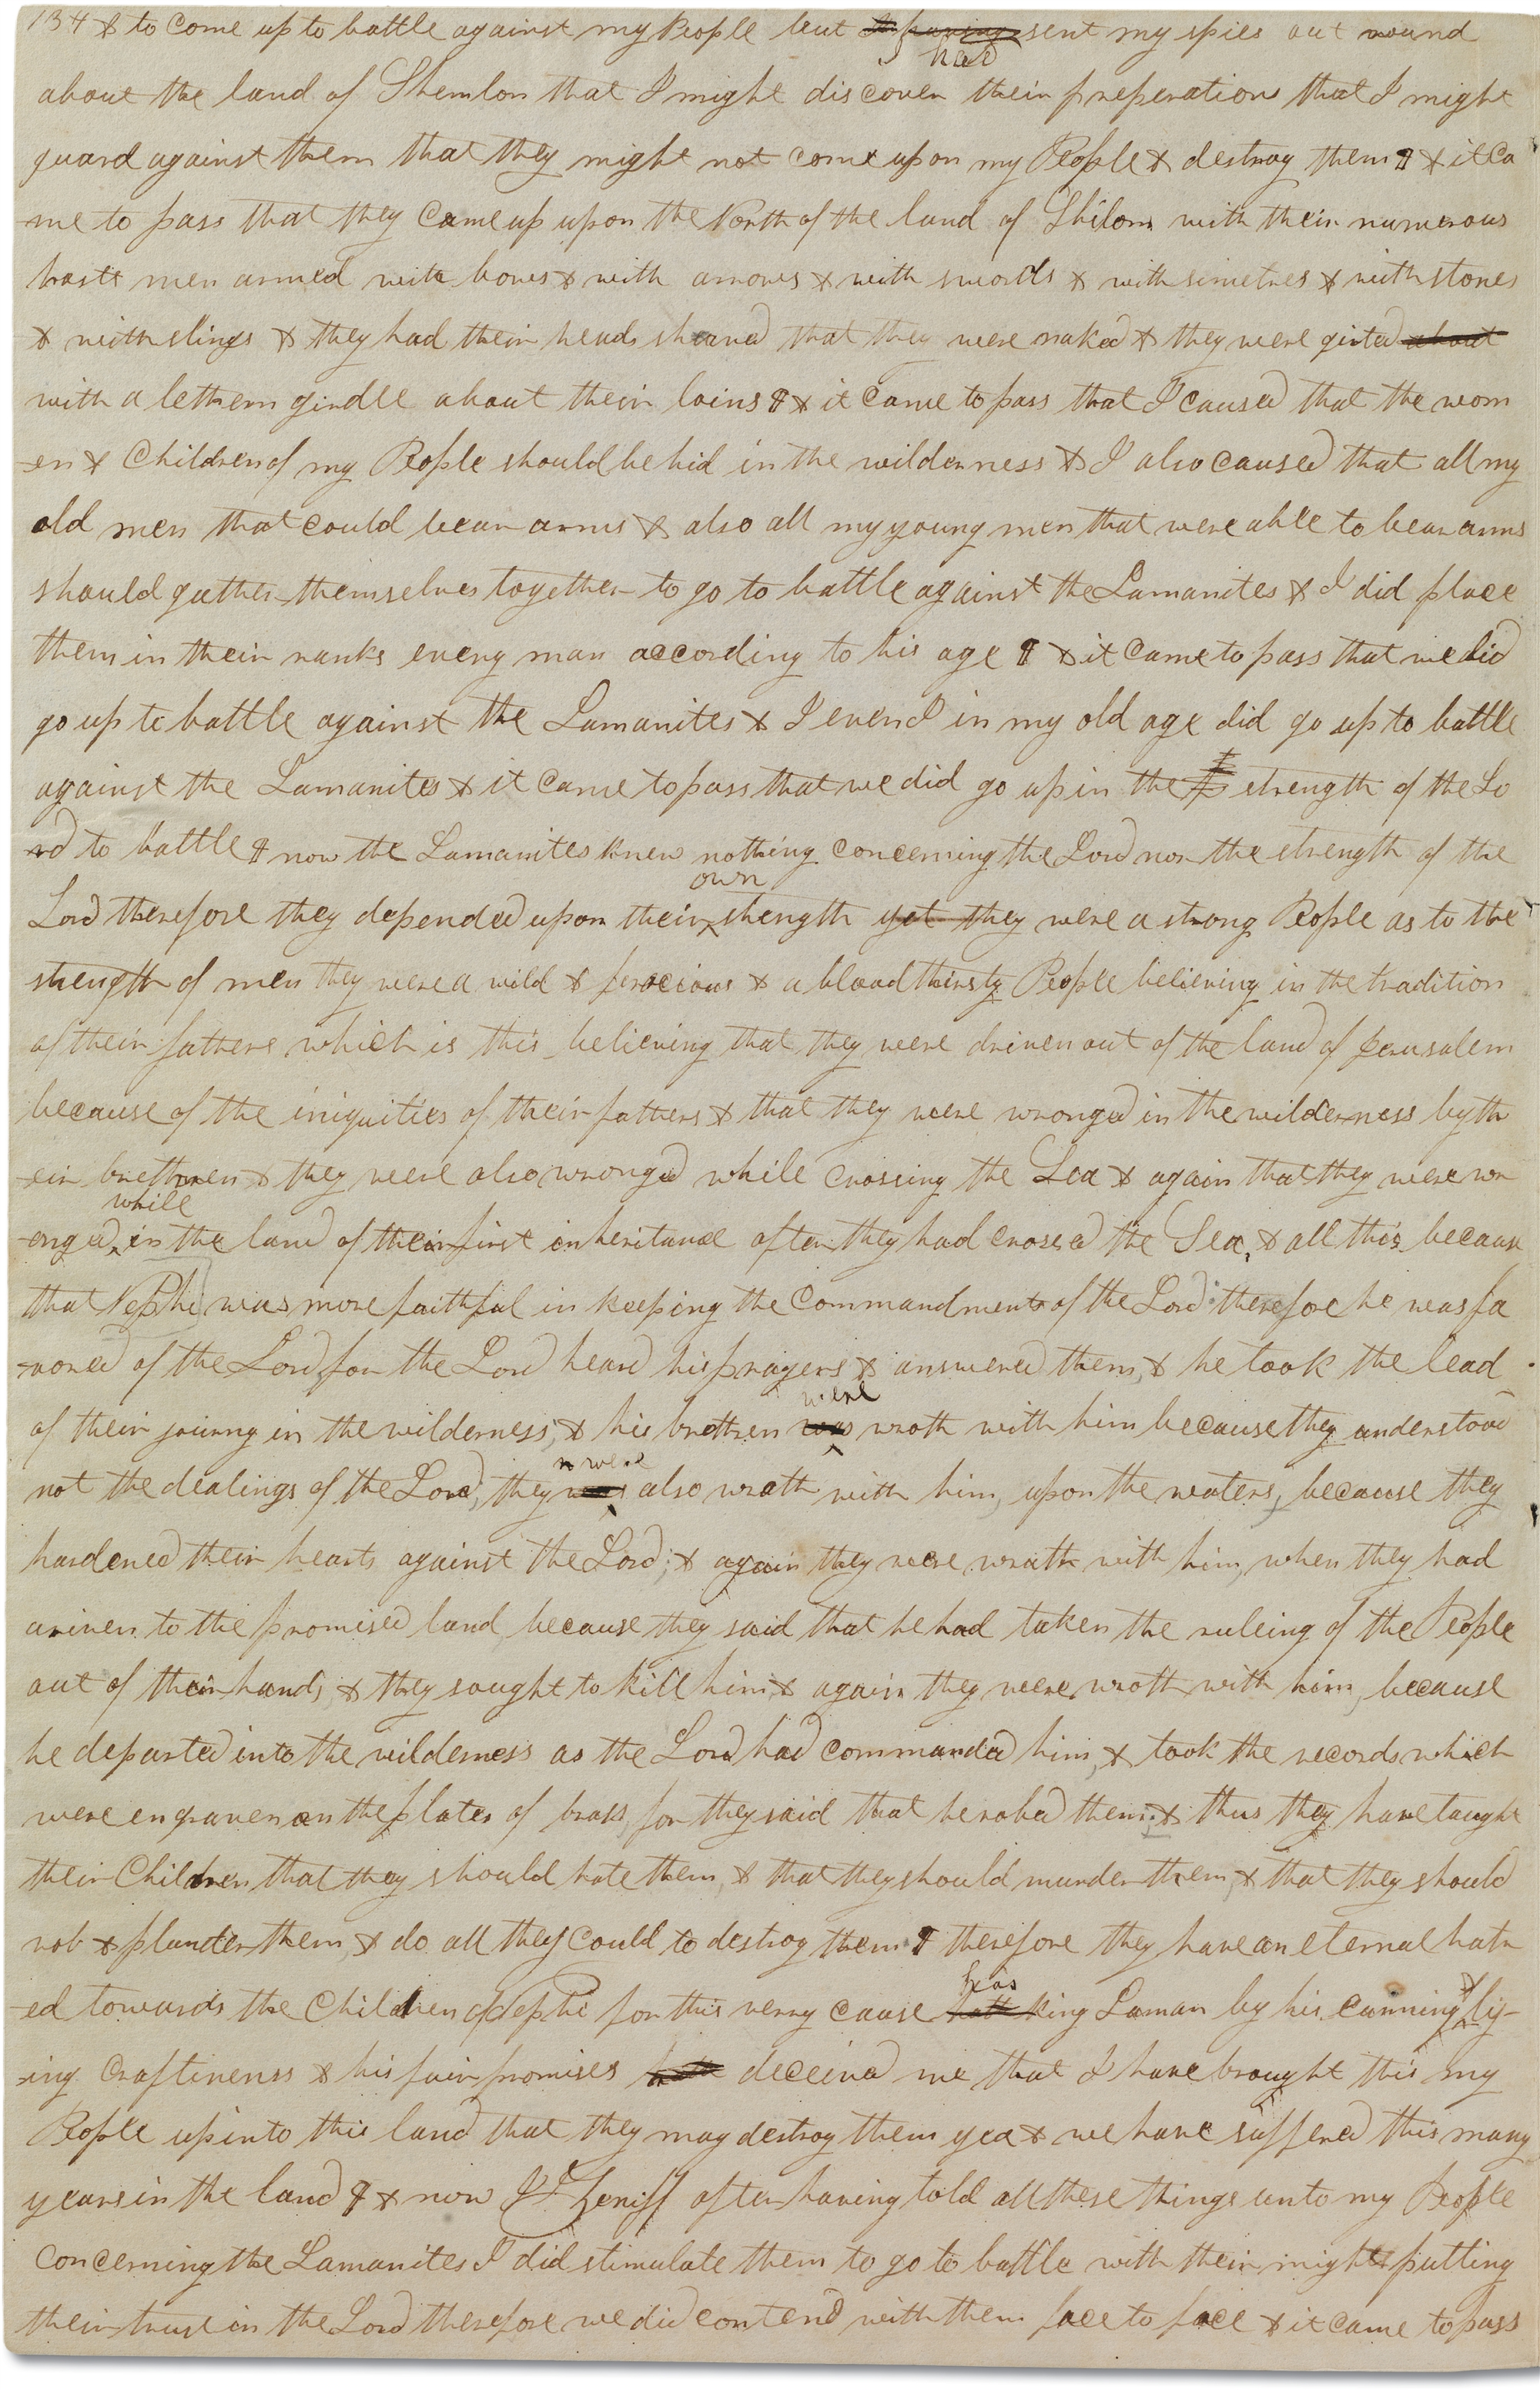 134 & to come up to battle against my People but I having had sent my spies out round
about the land of Shemlon that I might discover their preperations that I might
guard against them that they might not come upon my People & destroy them ¶ & it ca
-me to pass that they came up upon the North of the land of Shilom with their numerous
hosts men armed with bows & with arrows & with swords & with simetres & with stones
& with slings & they had their heads shaved that they were naked & they were girted about
with a lethern girdle about their loins ¶ & it came to pass that I caused that the wom
-en & Children of my People should be hid in the wilderness & I also caused that all my
old men that could bear arms & also all my young men that were able to bear arms
should gather themselves together to go to battle against the Lamanites & I did place
them in their ranks every man according to his age ¶ & it came to pass that we did
go up to battle against the Lamanites & I even I in my old age did go up to battle
against the Lamanites & it came to pass that we did go up in the strength of the Lo
-rd to battle ¶ now the Lamanites knew nothing concerning the Lord nor the strength of the
Lord therefore they depended upon their own strength yet they were a strong People as to the
strength of men they were a wild & ferocious & a blood thirsty People believing in the tradition
of their fathers which is this believing that they were driven out of the land of Jerusalem
because of the iniquities of their fathers & that they were wronged in the wilderness by th
-eir brethren & they were also wronged while crossing the Sea & again that they were wr
-onged while in the land of their first inheritance after they had crossed the Sea, & all this because
that Nephi was more faithful in keeping the commandments of the Lord therefore he was fa
-vored of the Lord for the Lord heard his prayers & answered them, & he took the lead
of their journy in the wilderness, & his brethren was were wroth with him because they understood
not the dealings of the Lord, they was were also wrath with him, upon the waters, because they
hardened their hearts against the Lord; & again they were wrath with him, when they had
ariven to the promised land, because they said that he had taken the ruleing of the People
out of their hands, & they sought to kill him & again they were wroth with him, because
he departed into the wilderness as the Lord had commanded him, & took the records which
were engraven on the plates of brass, for they said that he robed them; & thus they have taught
their Children that they should hate them, & that they should murder them, & that they should
rob & plunder them, & do all they could to destroy them ¶ therefore they have an eternal hatr
-ed towards the Children of Nephi for this verry cause hath has king Laman by his cunning & ly-
-ing craftineness & his fair promises hath deceived me that I have brought this my
People up into this land that they may destroy them yea & we have suffered this many
years in the land ¶ & now I Zeniff after having told all these things unto my People
concerning the Lamanites I did stimulate them to go to battle with their might putting
their trust in the Lord therefore we did contend with them face to face & it came to pass